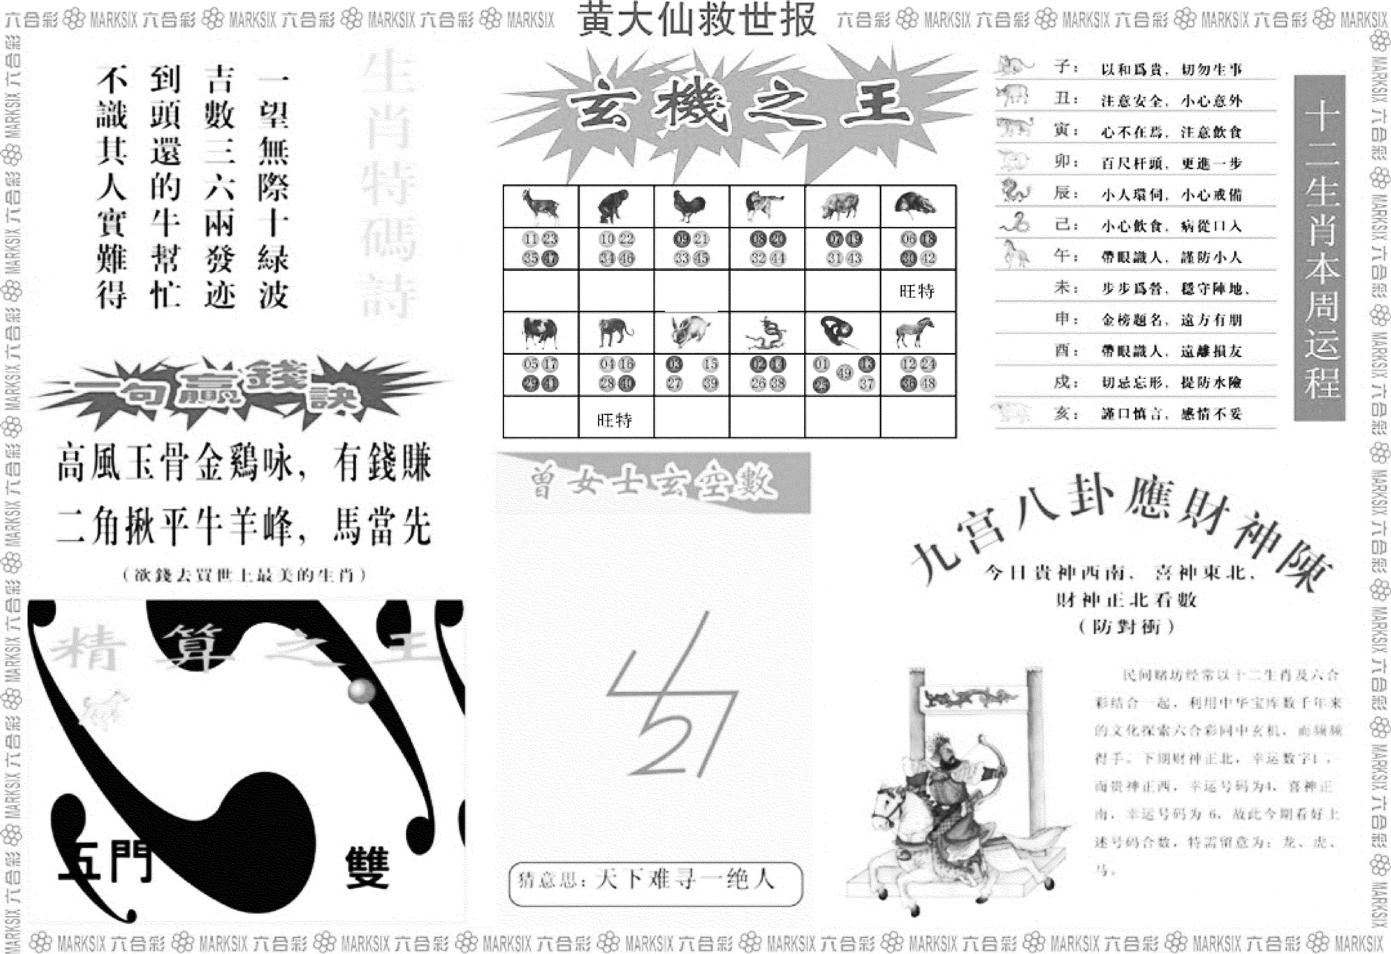 黄大仙救世报
生肖特碼詩
一望無際十緑波
吉數三六兩發迹
到頭還的牛幫忙
不識其人實難得
一句贏錢訣
高風玉骨金鷄咏，有錢賺
二角揪平牛羊峰，馬當先
（欲錢去買世上最美的生肖）
精算之王
五門
雙
玄機之王
11 23 10 22 09 21 08 20 07 19 06 18
35 47 34 46 33 45 32 44 31 43 30 42
旺特
05 17 04 16 03 15 02 14 01 13 12 24
29 41 28 40 27 39 26 38 25 49 37 36 48
旺特
曾女士玄空數
猜意思：天下难寻一绝人
十二生肖本周运程
子：以和爲貴，切勿生事
丑：注意安全，小心意外
寅：心不在焉，注意飲食
卯：百尺杆頭，更進一步
辰：小人環伺，小心戒備
己：小心飲食，病從口入
午：帶眼識人，謹防小人
未：步步爲營，穩守陣地、
申：金榜題名，遠方有朋
酉：帶眼識人，遠離損友
戍：切忌忘形，提防水險
亥：謹口慎言，感情不妥
九宫八卦應財神陳
今日貴神西南，喜神東北，
財神正北看數
（防對衝）
民间赌坊经常以十二生肖及六合
彩结合一起，利用中华宝库数千年来
的文化探索六合彩同中玄机，而频频
得手。下期财神正北，幸运数字1，
而贵神正西，幸运号码为4，喜神正
南，幸运号码为 6，故此今期看好上
述号码合数，特需留意为：龙、虎、
马。
MARKSIX 六合彩